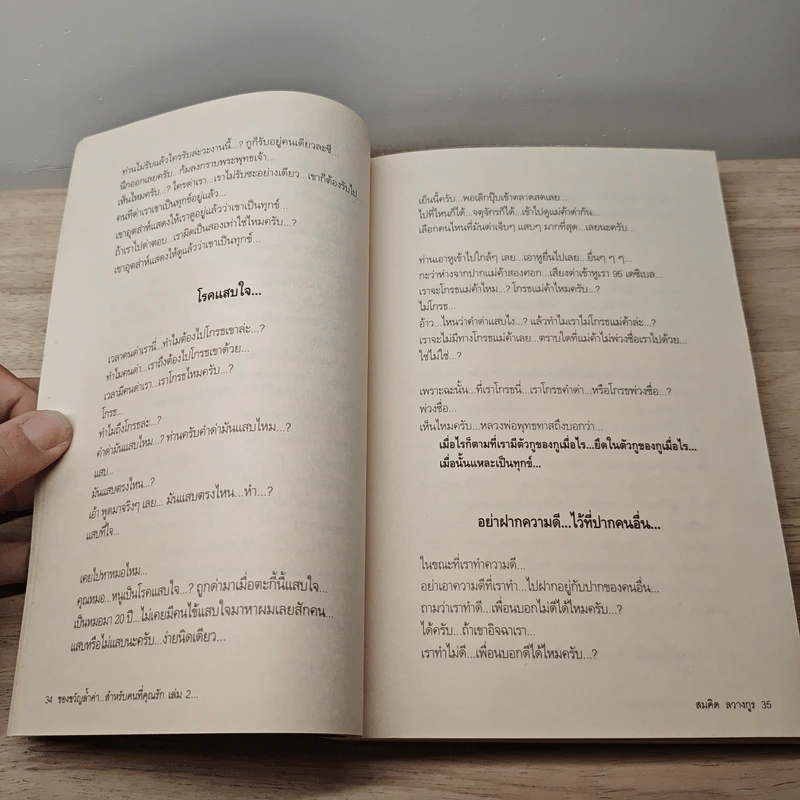 ท่านไม่รับแล้วใครรับล่ะวะงานนี้...? กูก็รับอยู่คนเดียวละซี...
นึกออกเลยครับ...ก้มลงกราบพระพุทธเจ้า...
เห็นไหมครับ...? ใครด่าเรา...เราไม่รับซะอย่างเดียว...เขาก็ต้องรับไป...
คนที่ด่าเราเขาเป็นทุกข์อยู่แล้ว...
เขาอุตส่าห์แสดงให้เราดูอยู่แล้วว่าเขาเป็นทุกข์...
ถ้าเราไปด่าตอบ...เราผิดเป็นสองเท่าใช่ไหมครับ...?
เขาอุตส่าห์แสดงให้ดูแล้วว่าเขาเป็นทุกข์...
โรคแสบใจ...
เวลาคนด่าเรานี่...ทำไมต้องไปโกรธเขาล่ะ...?
ทำไมคนด่า...เราถึงต้องไปโกรธเขาด้วย...
เวลามีคนด่าเรา...เราโกรธไหมครับ...?
โกรธ...
ทำไมถึงโกรธล่ะ...?
คำด่ามันแสบไหม...? ท่านครับคำด่ามันแสบไหม...?
แสบ...
มันแสบตรงไหน...?
เอ้า พูดมาจริงๆ เลย... มันแสบตรงไหน...หำ...?
แสบที่ใจ...
เคยไปหาหมอไหม...
คุณหมอ...หนูเป็นโรคแสบใจ...? ถูกด่ามาเมื่อตะกี้นี้แสบใจ...
เป็นหมอมา 20 ปี...ไม่เคยมีคนไข้แสบใจมาหาผมเลยสักคน...
แสบหรือไม่แสบนะครับ...ง่ายนิดเดียว...
34 ของขวัญล้ำค่า...สำหรับคนที่คุณรัก เล่ม 2...
เย็นนี้ครับ...พอเลิกปุ๊บเข้าตลาดสดเลย...
ไปที่ไหนก็ได้...จตุจักรก็ได้...เข้าไปดูแม่ค้าด่ากัน...
เลือกคนไหนที่มันด่าเจ็บๆ แสบๆ มากที่สุด...เลยนะครับ...
ท่านเอาหูเข้าไปใกล้ๆ เลย...เอาหูยื่นไปเลย...ยื่นๆ ๆ ๆ...
กะว่าห่างจากปากแม่ค้าสองศอก...เสียงด่าเข้าหูเรา 95 เดซิเบล...
เราจะโกรธแม่ค้าไหม...? โกรธแม่ค้าไหมครับ...?
ไม่โกรธ...
อ้าว...ไหนว่าคำด่าแสบไง...? แล้วทำไมเราไม่โกรธแม่ค้าล่ะ...?
เราจะไม่มีทางโกรธแม่ค้าเลย...ตราบใดที่แม่ค้าไม่พ่วงชื่อเราไปด้วย...
ใช่ไม่ใช่...?
เพราะฉะนั้น...ที่เราโกรธนี่...เราโกรธคำด่า...หรือโกรธพ่วงชื่อ...?
พ่วงชื่อ...
เห็นไหมครับ...หลวงพ่อพุทธทาสถึงบอกว่า...
เมื่อไรก็ตามที่เรามีตัวกูของกูเมื่อไร...ยึดในตัวกูของกูเมื่อไร...
เมื่อนั้นแหละเป็นทุกข์...
อย่าฝากความดี...ไว้ที่ปากคนอื่น...
ในขณะที่เราทำความดี...
อย่าเอาความดีที่เราทำ...ไปฝากอยู่กับปากของคนอื่น...
ถามว่าเราทำดี...เพื่อนบอกไม่ดีได้ไหมครับ...?
ได้ครับ...ถ้าเขาอิจฉาเรา...
เราทำไม่ดี...เพื่อนบอกดีได้ไหมครับ...?
สมคิด ลวางกูร 35